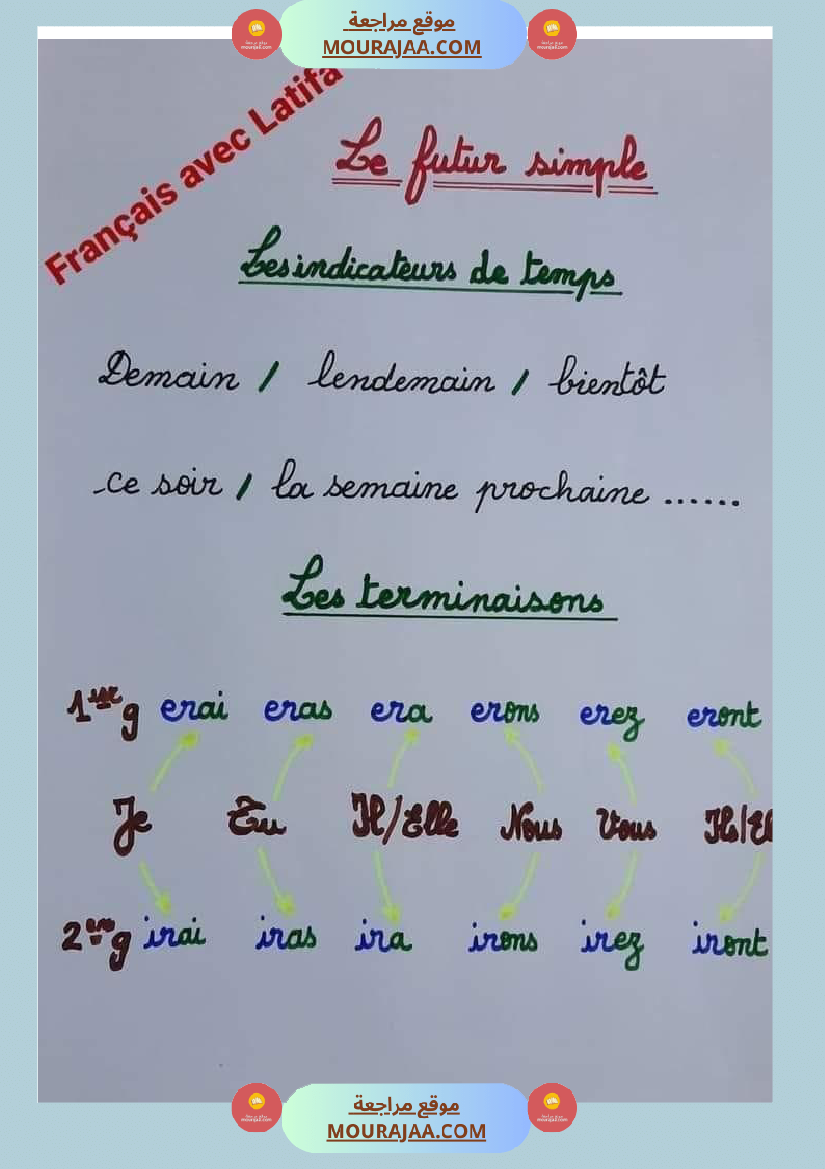 موقع مراجعة
MOURAJAA.COM
Français avec Latifa
Le futur simple
Les indicateurs de temps
Demain / lendemain / bientôt
ce soir / la semaine prochaine ......
Les terminaisons
1ère g erai eras era erons erez eront
Je Tu Il/Elle Nous Vous Ils/El
2ème g irai iras ira irons irez iront
موقع مراجعة
MOURAJAA.COM